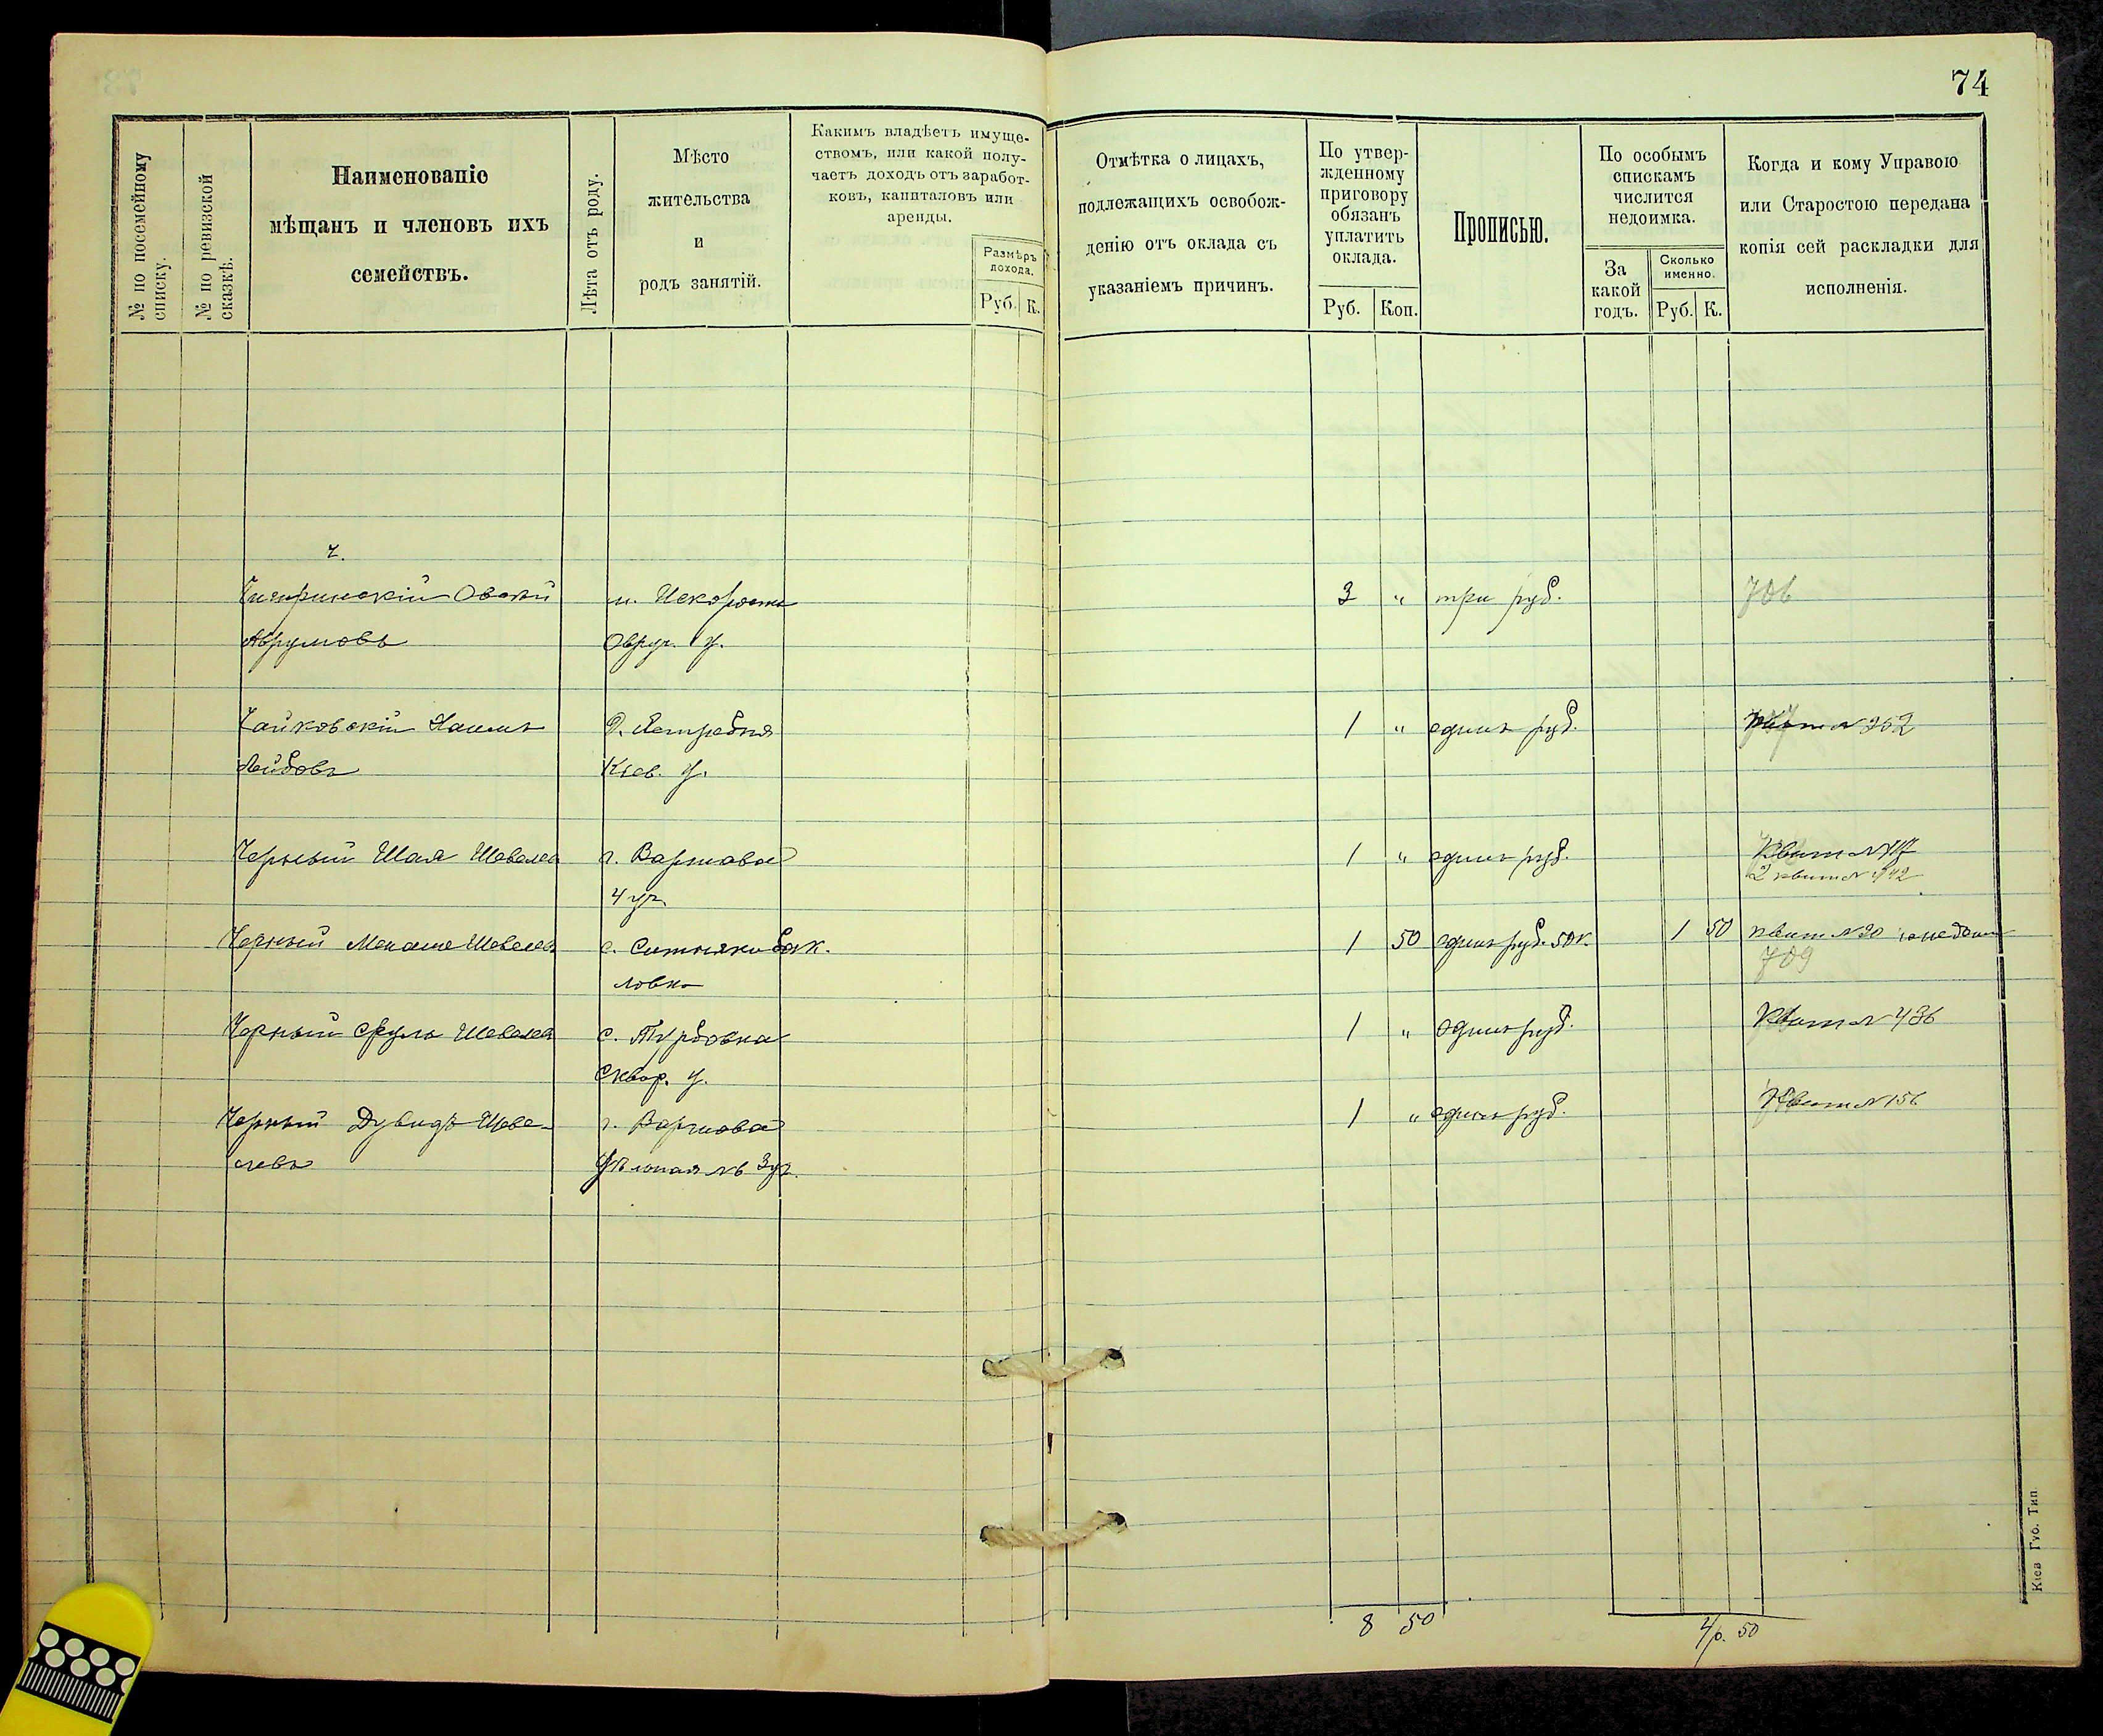 74
№ по посемейному списку.
№ по ревизской сказкѣ.
Наименованіе
мѣщанъ и членовъ ихъ
семействъ.
Лѣта отъ роду.
Мѣсто
жительства
и
родъ занятій.
Какимъ владѣетъ имуще-
ствомъ, или какой полу-
чаетъ доходъ отъ заработ-
ковъ, капиталовъ или
аренды.
Размѣръ
дохода.
Руб. К.
Отмѣтка о лицахъ,
подлежащихъ освобож-
денію отъ оклада съ
указаніемъ причинъ.
По утвер-
жденному
приговору
обязанъ
уплатить
оклада.
Руб. Коп.
Прописью.
По особымъ
спискамъ
числится
недоимка.
За
какой
годъ.
Сколько
именно.
Руб. К.
Когда и кому Управою
или Старостою передана
копія сей раскладки для
исполненія.
Ч.
Чигиринскій Овсей м. Искорость 3 " три руб. 706
Аврумовъ Овруч. у.
Чайковскій Лейбовъ 1 " одинъ руб. № 252
Кіев. у.
Черный Шая Шевелевъ г. Варшава 1 " одинъ руб. Квит №
4 уч. 2 квит №
Черный Менаше Шевелевъ с. Ситняки 1 50 одинъ руб. 50 к. 1 50 квит № 20
ловка 709
Черный Сруль Шевелевъ с. Турбовка 1 " одинъ руб. Квит № 436
Сквир. у.
Черный Дувидъ Шеве- г. Варшава 1 " одинъ руб. Квит № 156
левъ №6 3 уч.
8 50 4 р. 50
Кіев Губ. Тип.